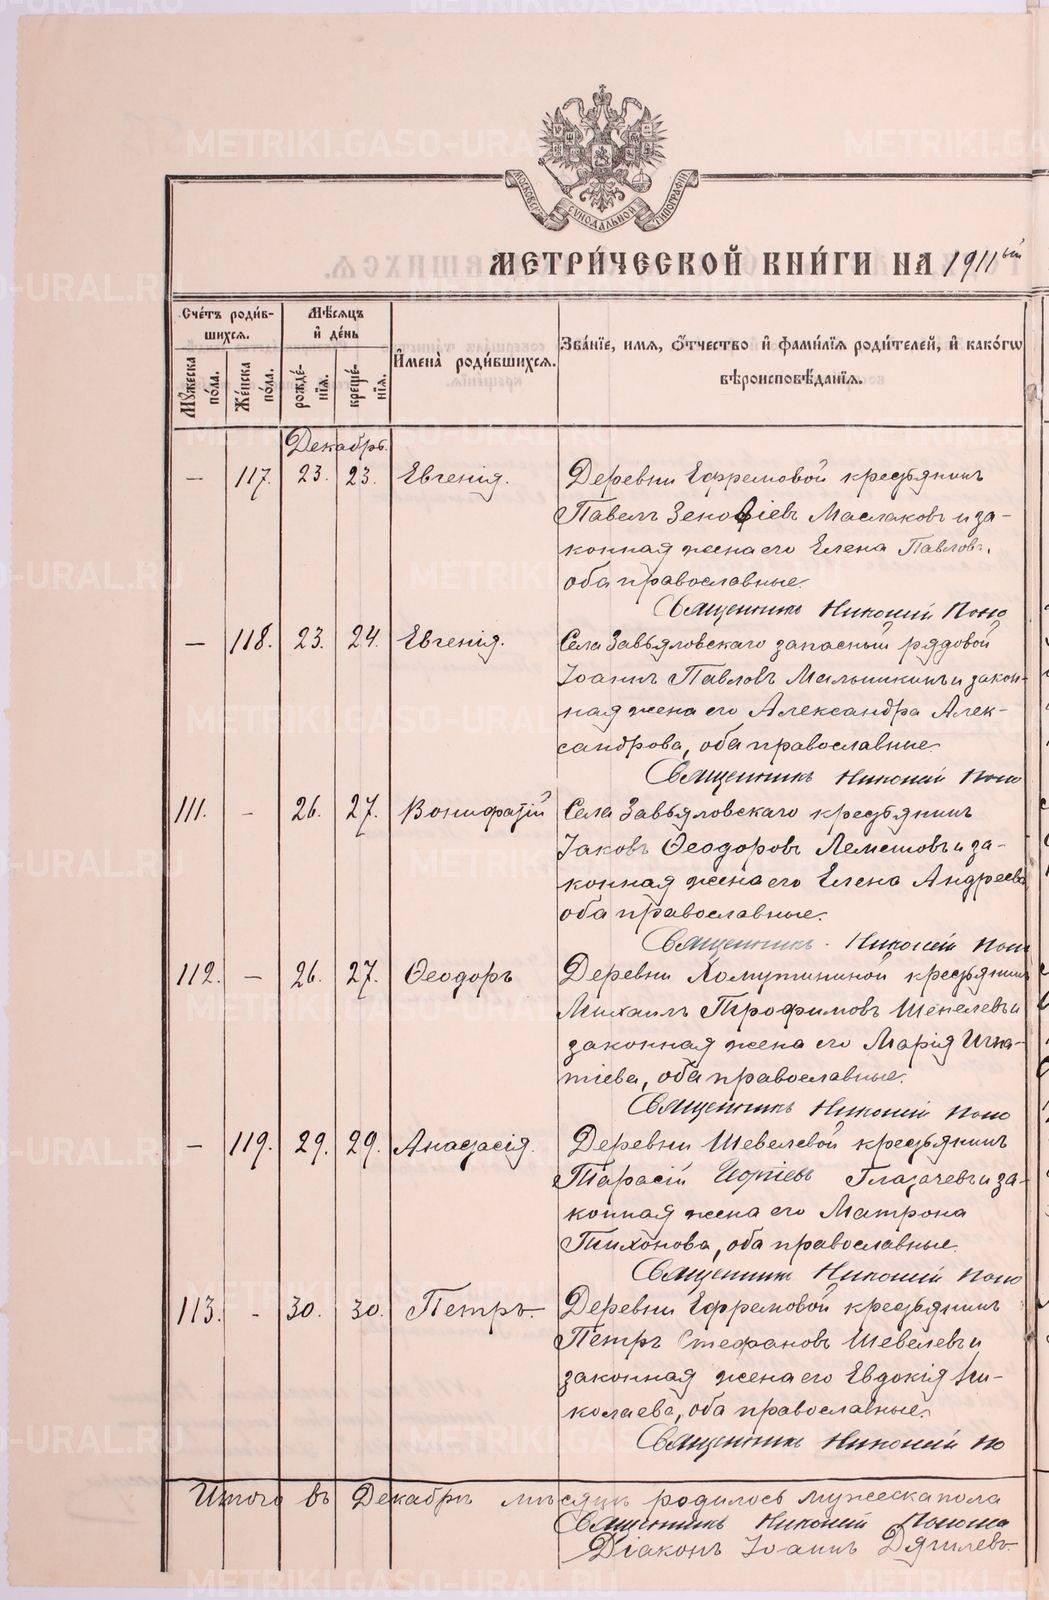 МОСКОВСК. СѴНОДАЛЬНОЙ ТИПОГРАФІИ
МЕТРИ́ЧЕСКОЙ КНИ́ГИ НА 1911ый
Сче́тъ роди́вшихся.
Му́жеска по́ла.
Же́нска по́ла.
Мѣ́сяцъ и҆ де́нь
рожде́нїя.
креще́нїя.
И҆мена̀ роди́вшихся.
Зва́нїе, имя, ѻ҆́тчество и҆ фами́лїя роди́телей, и҆ како́гѡ
вѣроисповѣ́данїя.
Декабрь.
— 117. 23. 23. Евгенія. Деревни Ефремовой крестьянинъ
Павелъ Зеновіевъ Маслаковъ и за-
конная жена его Елена Павлов.,
оба православные.
Священникъ Николай Поно
— 118. 23. 24. Евгенія. Села Завьяловскаго запасный рядовой
Іоаннъ Павловъ Мальшикинъ и закон-
ная жена его Александра Алек-
сандрова, оба православные.
Священникъ Николай Поно
111. - 26. 27. Вонифатій Села Завьяловскаго крестьянинъ
Іаковъ Ѳеодоровъ Лемешовъ и за-
конная жена его Елена Андреева
оба православные.
Священникъ Николай Поно
112. — 26. 27. Ѳеодоръ Деревни Хомутининой крестьянинъ
Михаилъ Трофимовъ Шепелевъ и
законная жена его Марія Игна-
тіева, оба православные.
Священникъ Николай Поно
— 119. 29. 29. Анастасія. Деревни Шевелевой крестьянинъ
Тарасій Глазачевъ и за-
конная жена его Матрона
Тихонова, оба православные.
Священникъ Николай Поно
113. - 30. 30. Петръ. Деревни Ефремовой крестьянинъ
Петръ Стефановъ Шевелевъ и
законная жена его Евдокія Ни-
колаева, оба православные.
Священникъ Николай По
Итого въ Декабрѣ мѣсяцѣ родилось мужеска пола
Священникъ Николай Поно
Діаконъ Іоаннъ Дягилевъ.
METRIKI.GASO-URAL.RU